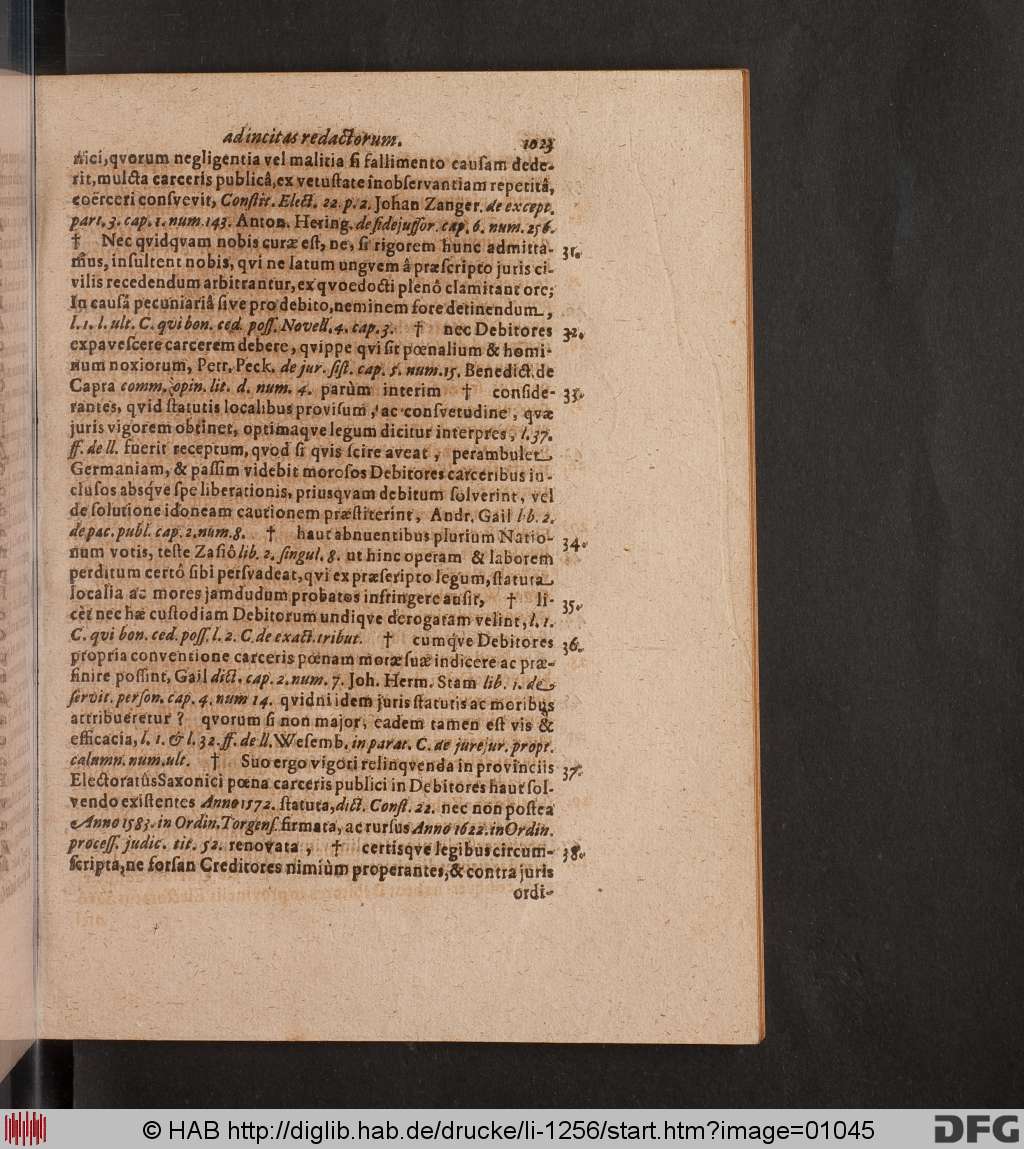 ad incitas redactorum. 1023
nici, qvorum negligentia vel malitia si fallimento causam dede-
rit, mulcta carceris publicâ, ex vetustate inobservantiam repetitâ,
coërceri consvevit, Constit. Elect. 22. p. 2. Johan Zanger. de except.
part. 3. cap. 1. num. 143. Anton. Hering. de fidejussor. cap. 6. num. 256.
† Nec qvidqvam nobis curæ est, ne, si rigorem hunc admitta- 31.
mus, insultent nobis, qvi ne latum ungvem â præscripto juris ci-
vilis recedendum arbitrantur, ex qvoedocti plenô clamitant ore;
In causâ pecuniariâ sive pro debito, neminem fore detinendum,
l. 1. l. ult. C. qvi bon. ced. poss. Novell. 4. cap. 3. † nec Debitores 32.
expavescere carcerem debere, qvippe qvi sit pœnalium & homi-
num noxiorum, Petr. Peck. de jur. sist. cap. 5. num. 15. Benedict. de
Capra comm. opin. lit. d. num. 4. parùm interim † conside- 33.
rantes, qvid statutis localibus provisum, ac consvetudine, qvæ
juris vigorem obtinet, optimaqve legum dicitur interpres, l. 37.
ff. de ll. fuerit receptum, qvod si qvis scire aveat, perambulet
Germaniam, & passim videbit morosos Debitores carceribus in-
clusos absqve spe liberationis, priusqvam debitum solverint, vel
de solutione idoneam cautionem præstiterint, Andr. Gail lib. 2.
de pac. publ. cap. 2. num. 8. † haut abnuentibus plurium Natio- 34.
num votis, teste Zasiô lib. 2. singul. 8. ut hinc operam & laborem
perditum certô sibi persvadeat, qvi ex præscripto legum, statuta
localia ac mores jamdudum probatos infringere ausit, † li- 35.
cèt nec hæ custodiam Debitorum undiqve derogatam velint, l. 1.
C. qvi bon. ced. poss. l. 2. C. de exact. tribut. † cumqve Debitores 36.
propria conventione carceris pœnam moræ suæ indicere ac præ-
finire possint, Gail dict. cap. 2. num. 7. Joh. Herm. Stam lib. 1. de
servit. person. cap. 4. num 14. qvidni idem juris statutis ac moribus
attribueretur? qvorum si non major, eadem tamen est vis &
efficacia, l. 1. & l. 32. ff. de ll. Wesemb. in parat. C. de jurejur. propt.
calumn. num. ult. † Suo ergo vigori relinqvenda in provinciis 37.
Electoratûs Saxonici pœna carceris publici in Debitores haut sol-
vendo existentes Anno 1572. statuta, dict. Const. 22. nec non postea
Anno 1583. in Ordin. Torgens. firmata, ac rursus Anno 1622. in Ordin.
process. judic. tit. 52. renovata, † certisqve legibus circum- 38.
scripta, ne forsan Creditores nimiùm properantes, & contra juris
ordi-
© HAB http://diglib.hab.de/drucke/li-1256/start.htm?image=01045
DFG